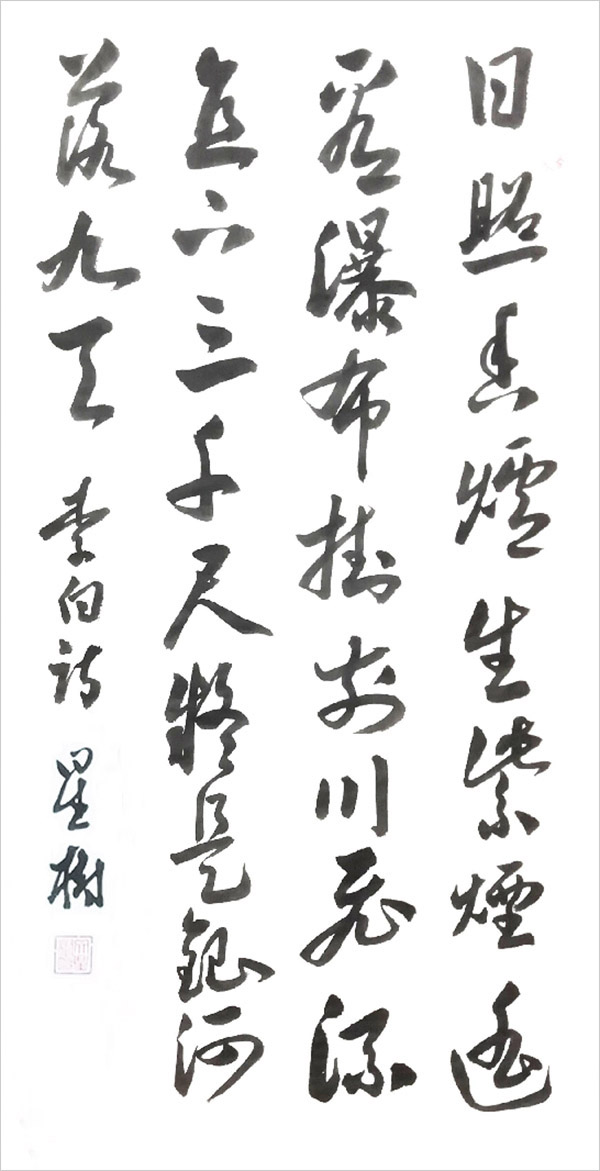 日照香爐生紫煙遙
看瀑布掛前川飛流
直下三千尺疑是銀河
落九天 李白詩 星樹